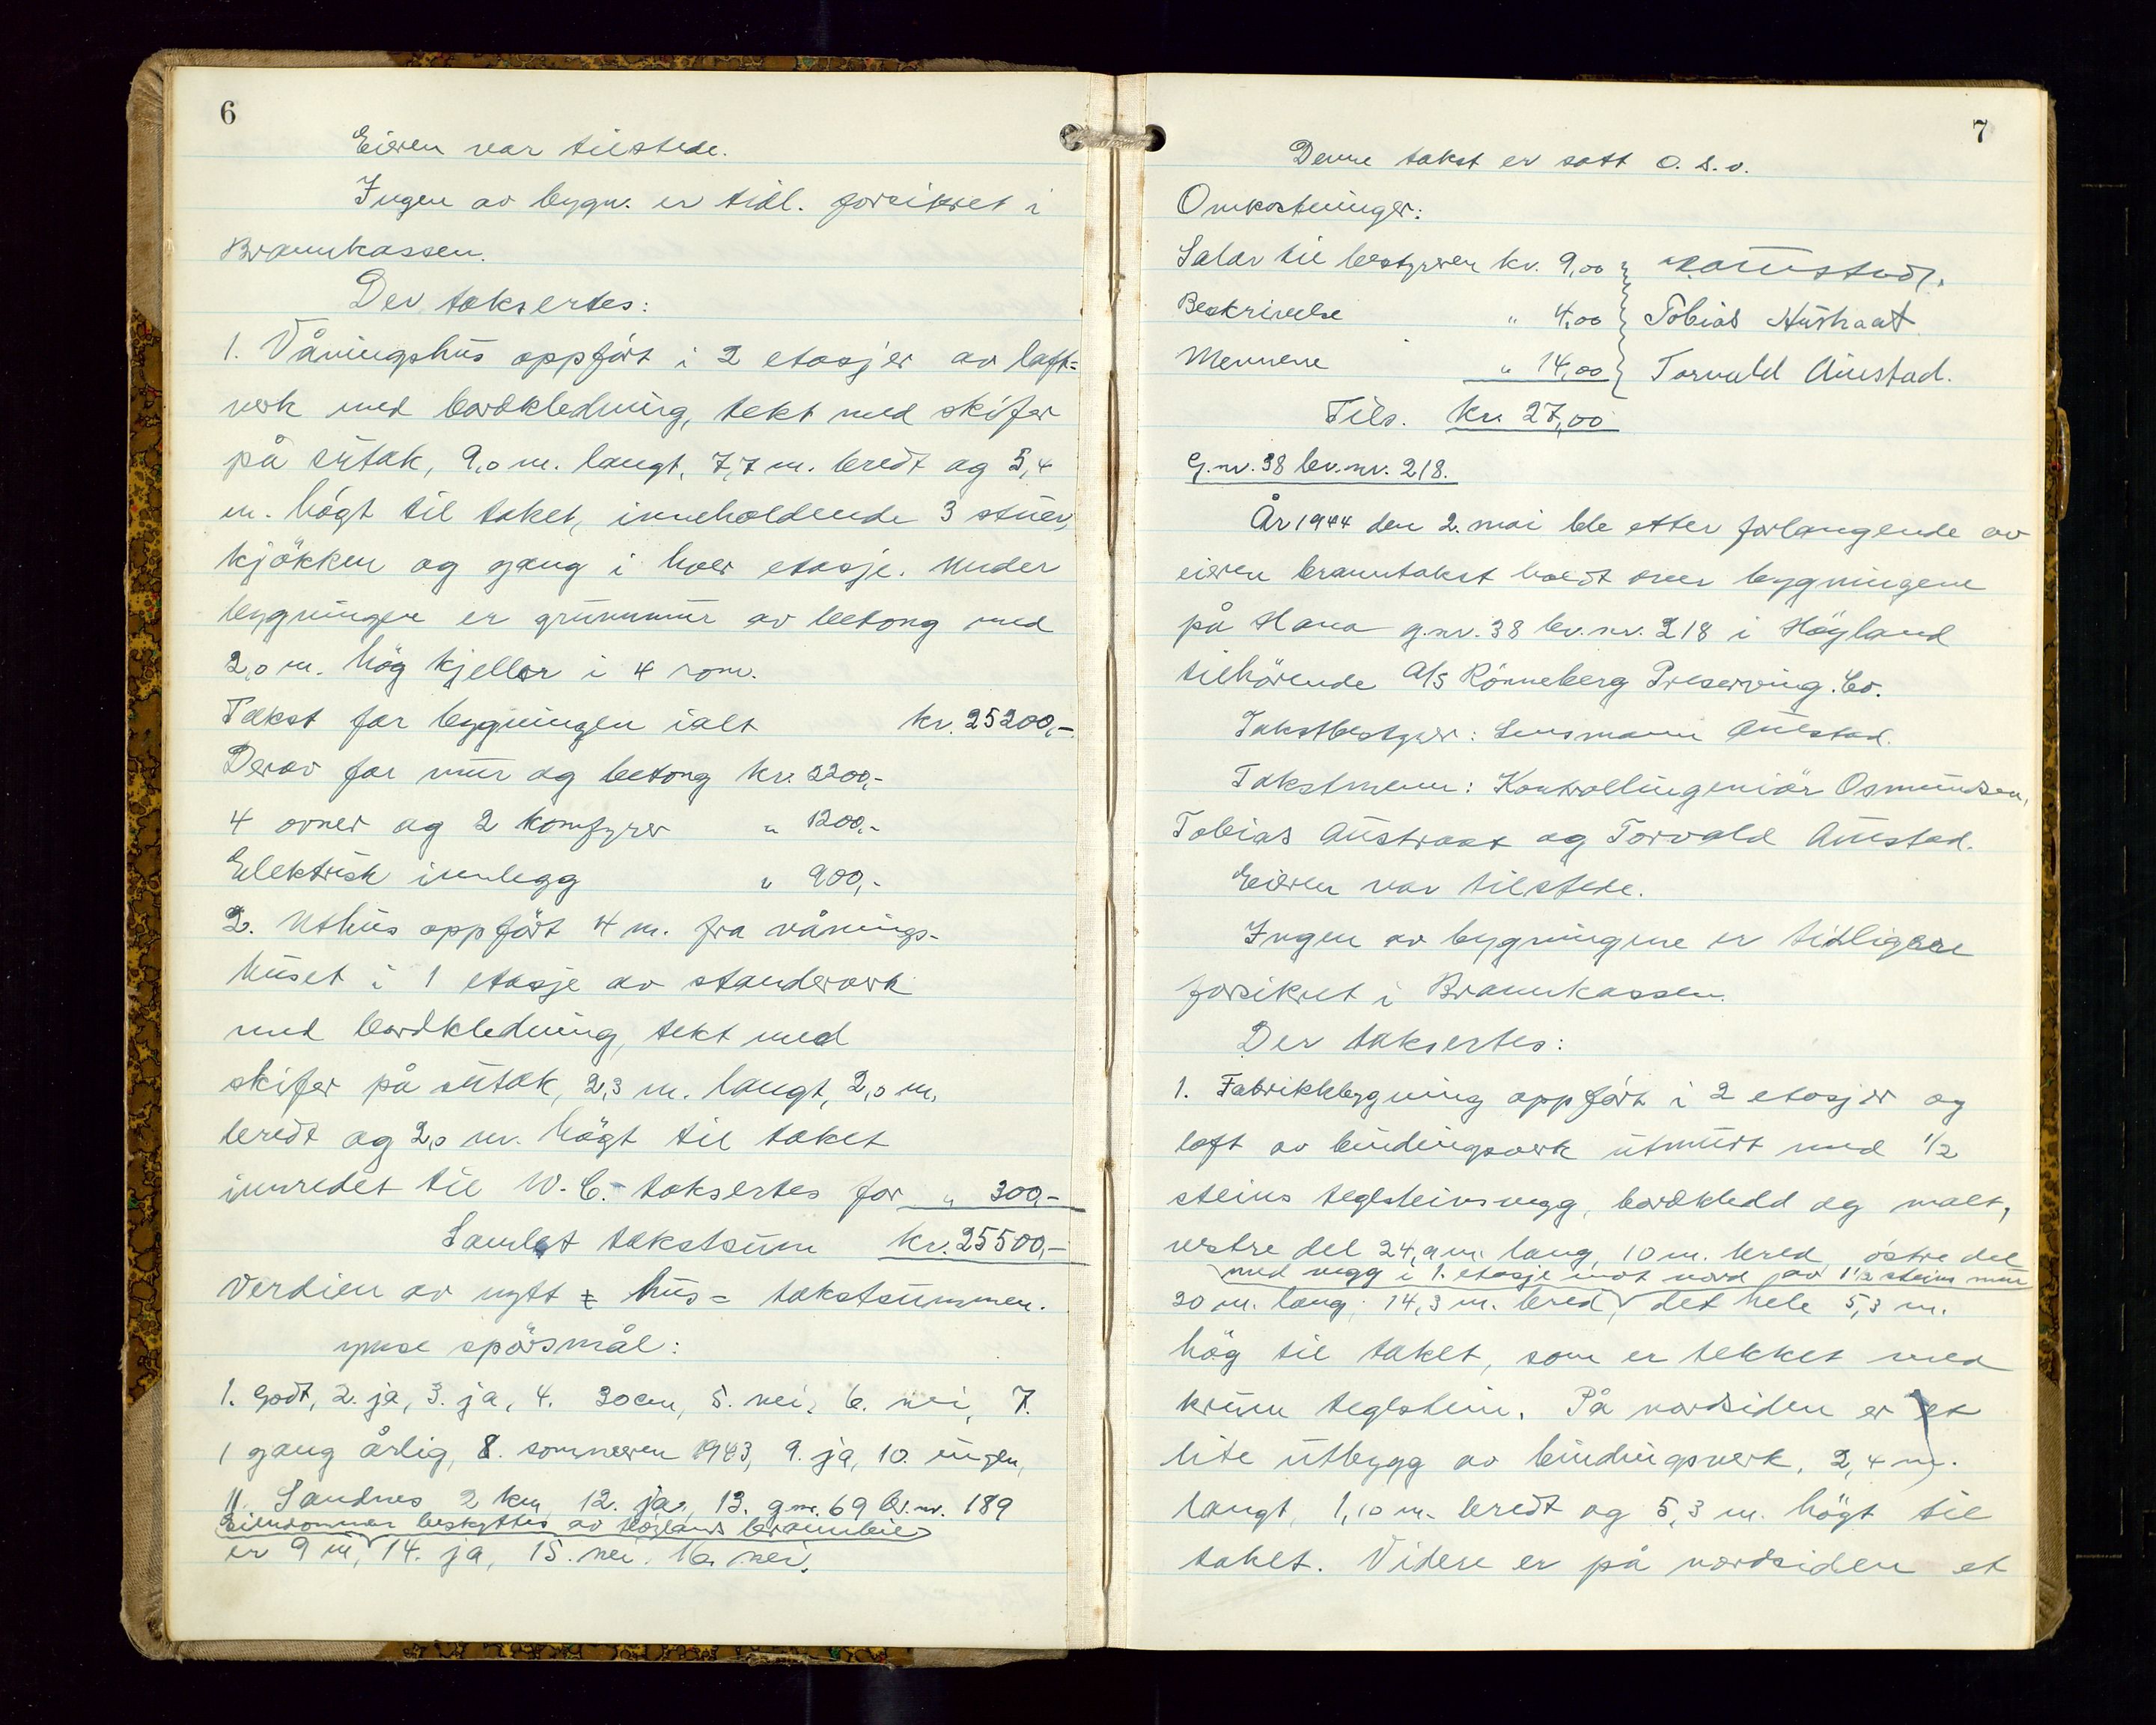 6
Eieren var tilstede.
Ingen av bygn. er tidl. forsikret i
Brannkassen.
Der taksertes:
1. Våningshus oppført i 2 etasjer av laft-
verk med bordkledning, tekt med skifer
på sutak, 9,0 m. langt, 7,7 m. bredt og 5,4
m. högt til taket, inneholdende 3 stuer,
kjökken og gang i hver etasje. Under
bygningen er grunnmur av betong med
2,0 m. hög kjeller i 4 rom.
Takst for bygningen ialt kr. 25200,-
Derav for mur og betong kr. 2200,-
4 ovner og 2 komfyrer " 1200,-
Elektrisk innlegg " 900,-
2. Uthus oppfört 4 m. fra vånings-
huset i 1 etasje av standverk
med bordkledning, tekt med
skifer på sutak, 2,3 m. langt, 2,0 m.
bredt og 2,0 m. högt til taket
innredet til W.C. taksertes for " 300,-
Samlet takstsum kr. 25500,-
Verdien av nytt hus = takstsummen.
Ymse spörsmål:
1. Godt, 2. ja, 3. ja, 4. 30 cm, 5. nei, 6. nei, 7.
1 gang årlig, 8. sommeren 1943, 9. ja, 10. ingen,
11. Sandnes 2 km, 12. ja, 13. g.nr. 69 br.nr. 189
Eiendommen beskyttes av Höylands brannbil
er 9 m, 14. ja, 15. nei. 16. nei.
7
Denne takst er satt o.s.v.
Omkostninger:
Salær til bestyreren kr. 9,00 Aulestad.
Beskrivelse " 4,00 Tobias Austraat
Mennene " 14,00 Torvald Auestad.
Tils. kr. 27,00
G.nr. 38 br.nr. 218.
År 1944 den 2. mai ble etter forlangende av
eieren branntakst holdt over bygningene
på Hana g.nr. 38 br.nr. 218 i Höyland
tilhörende A/S Rönneberg Preserving. Co.
Takstbestyrer: Lensmann Aulestad.
Takstmenn: Kontrollingeniör Osmundsen,
Tobias Austraat og Torvald Auestad.
Eieren var tilstede.
Ingen av bygningene er tidligere
forsikret i Brannkassen.
Der taksertes:
1. Fabrikkbygning oppfört i 2 etasjer og
loft av bindingsverk utmurt med 1/2
steins teglsteinsvegg, bordkledd og malt,
vestre del 24,9 m. lang, 10 m. bred, östre del
med vegg i 1. etasje mot nord av 1 1/2 steins mur
20 m. lang, 14,3 m. bred, det hele 5,3 m.
hög til taket, som er tekket med
krum teglstein. På nordsiden er et
lite utbygg av bindingsverk, 2,4 m.
langt, 1,10 m. bredt og 5,3 m. högt til
taket. Videre er på nordsiden et